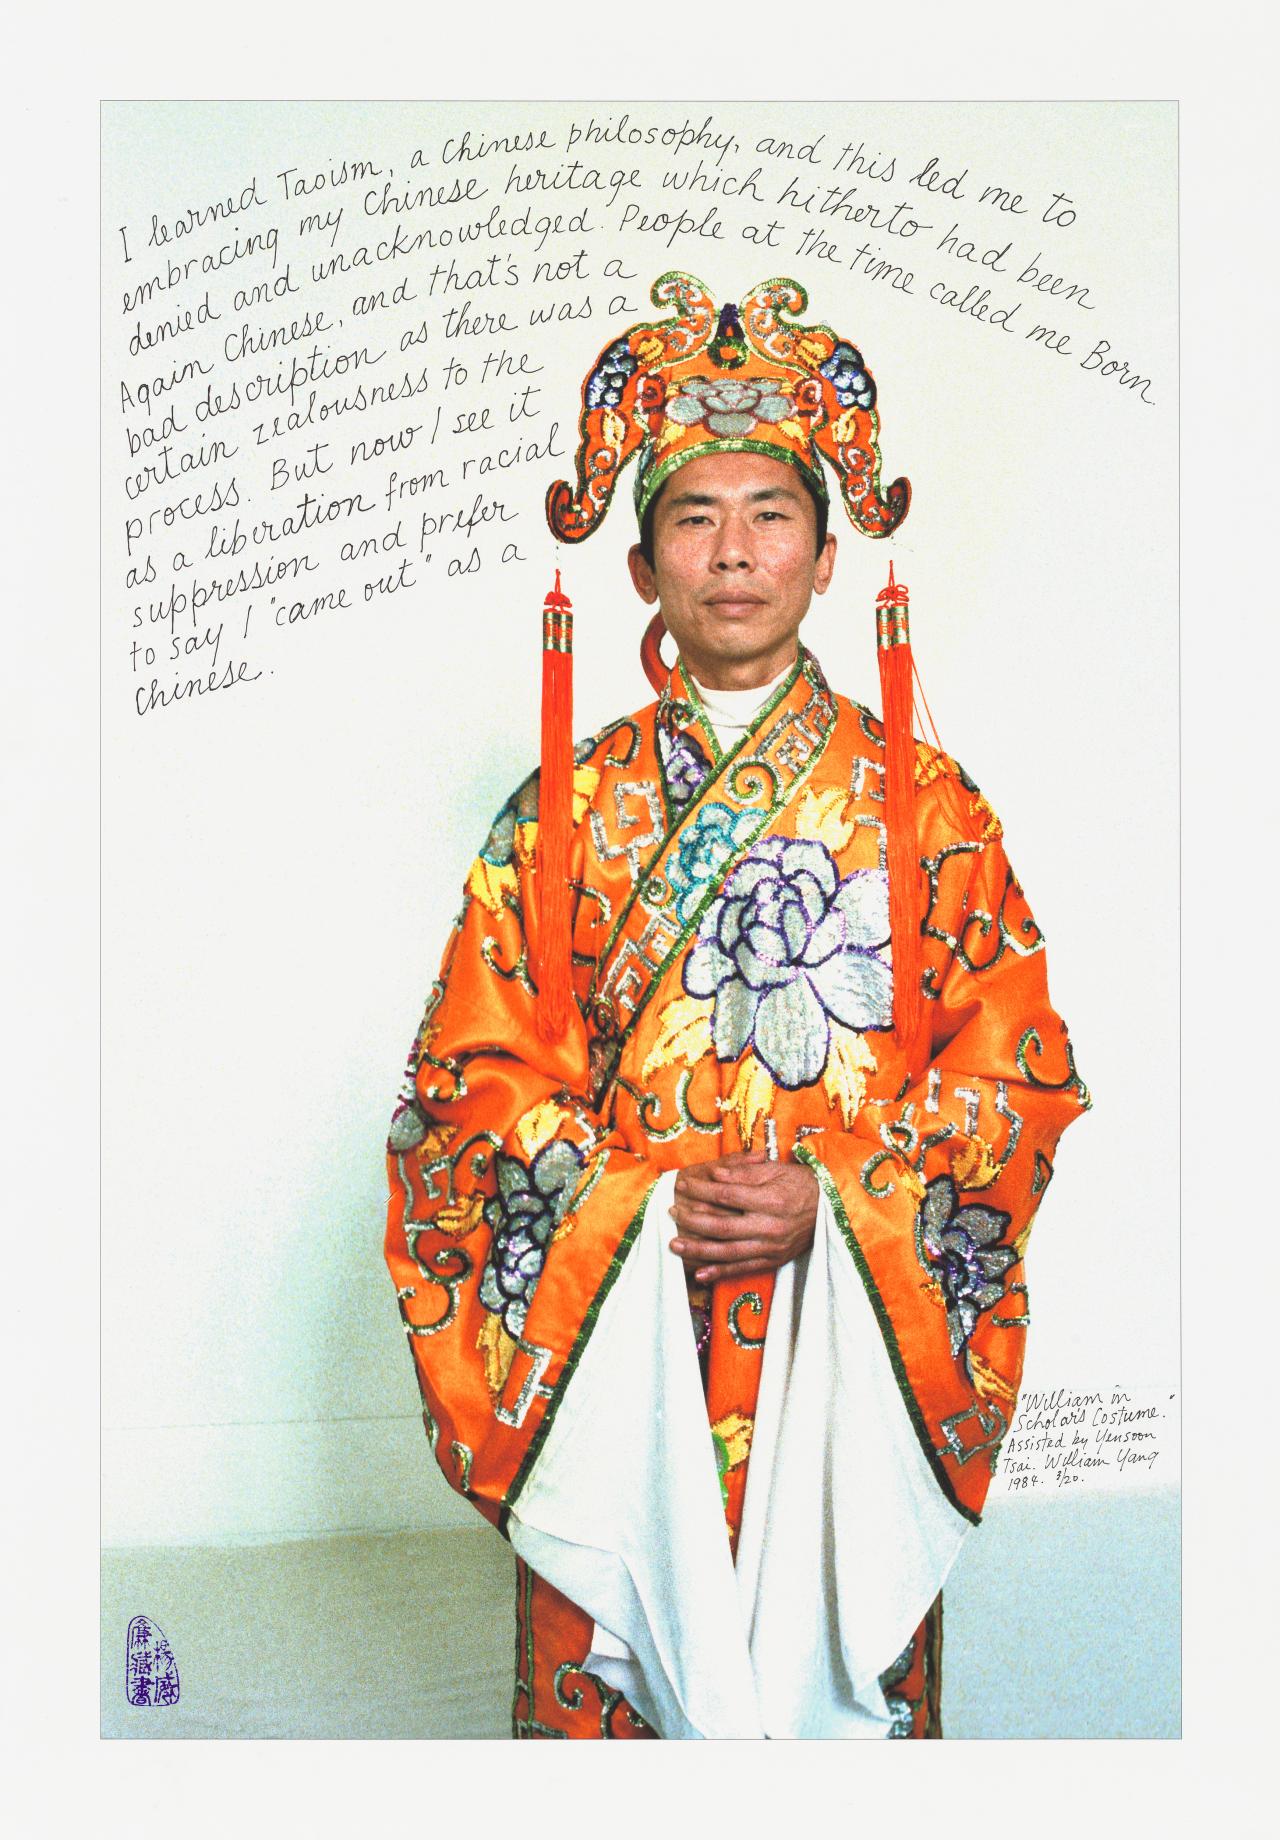 I learned Taoism, a Chinese philosophy, and this led me to
embracing my Chinese heritage which hitherto had been
denied and unacknowledged. People at the time called me Born
Again Chinese, and that's not a
bad description as there was a
certain zealousness to the
process. But now I see it
as a liberation from racial
suppression and prefer
to say I "came out" as a
Chinese.
"William in
Scholar's Costume."
Assisted by Yensoon
Tsai. William Yang
1984. 3/20.
楊威
廉藏書